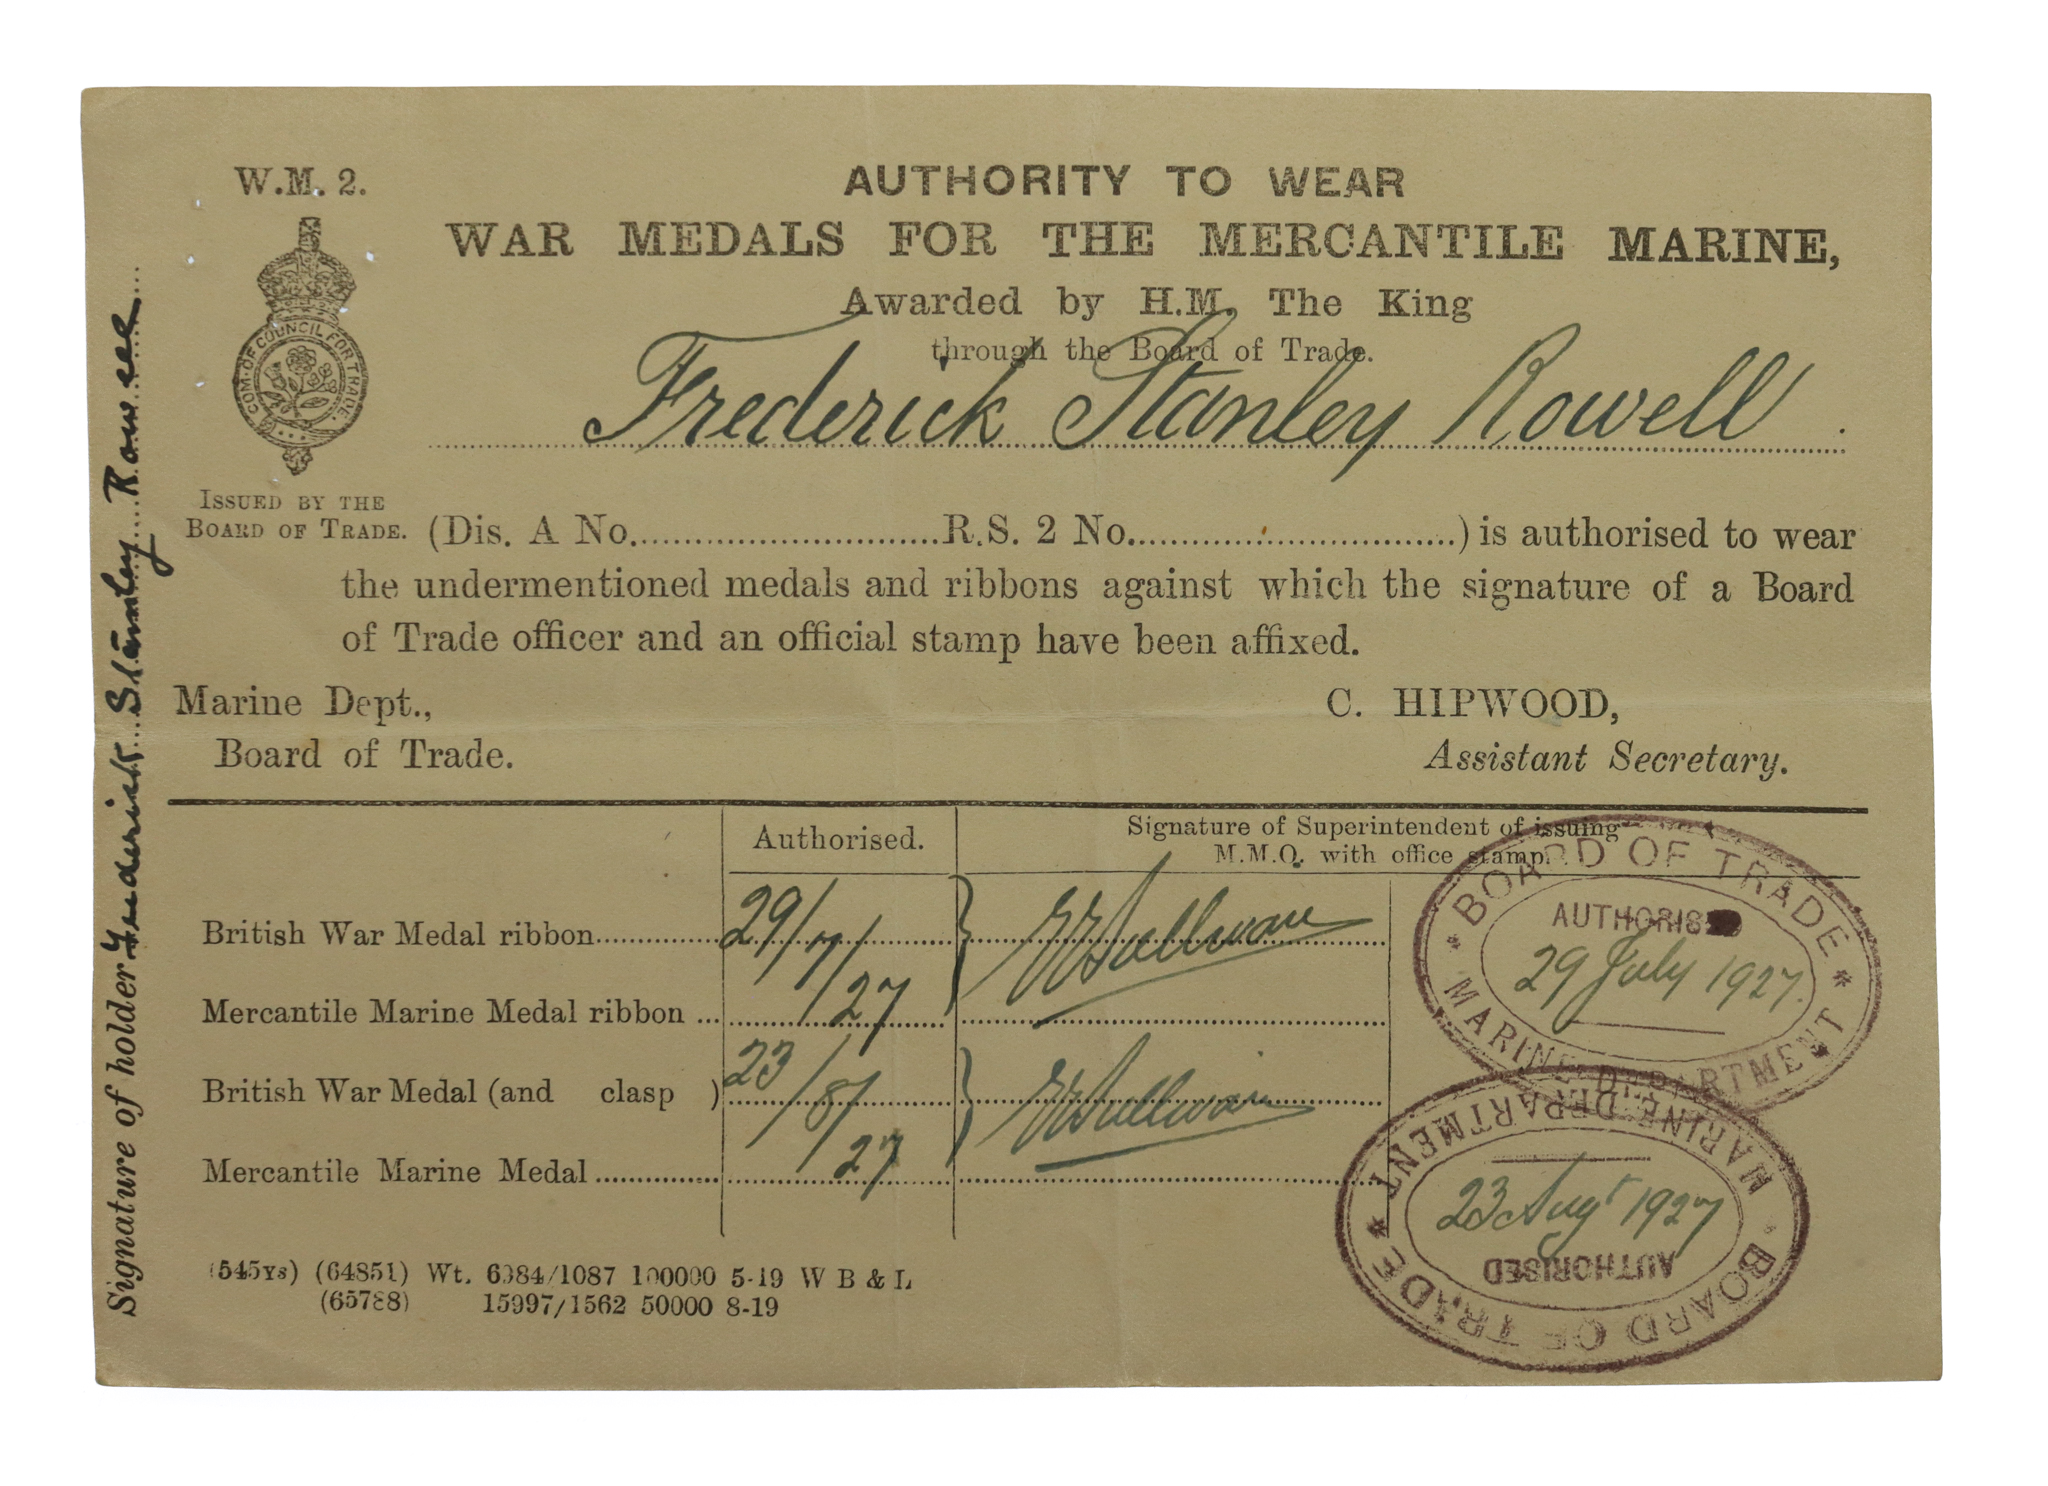 W.M. 2.
AUTHORITY TO WEAR
WAR MEDALS FOR THE MERCANTILE MARINE,
Awarded by H.M. The King
through the Board of Trade.
Frederick Stanley Rowell
COM. OF COUNCIL FOR TRADE.
ISSUED BY THE
BOARD OF TRADE.
(Dis. A No..............................R.S. 2 No..................................) is authorised to wear
the undermentioned medals and ribbons against which the signature of a Board
of Trade officer and an official stamp have been affixed.
Marine Dept.,
Board of Trade.
C. HIPWOOD,
Assistant Secretary.
Authorised.
Signature of Superintendent of issuing
M.M.O. with office stamp.
British War Medal ribbon............. 29/7/27 Sullivan
Mercantile Marine Medal ribbon ...
British War Medal (and clasp ) 23/8/27 Sullivan
Mercantile Marine Medal ................
BOARD OF TRADE
AUTHORISED
29 July 1927.
MARINE DEPARTMENT
MARINE DEPARTMENT
23 Augt 1927
AUTHORISED
BOARD OF TRADE
(545Ys) (64851) Wt. 6084/1087 100000 5-19 W B & L
(65788) 15997/1562 50000 8-19
Signature of holder Frederick Stanley Rowell